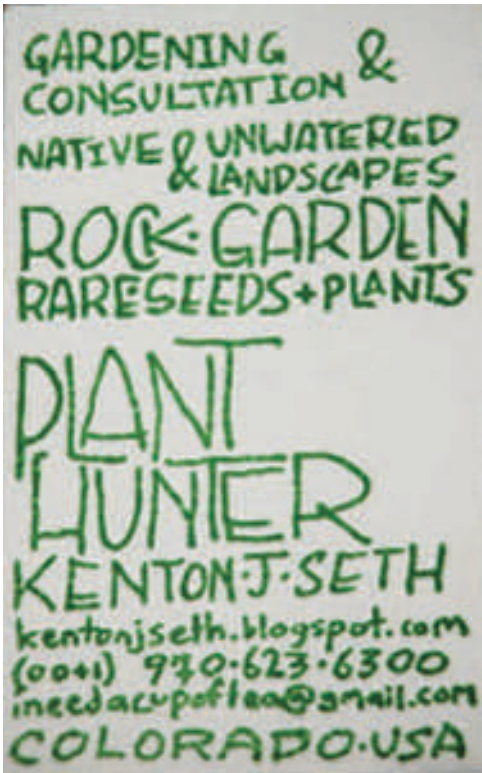 GARDENING &
CONSULTATION
NATIVE & UNWATERED
& LANDSCAPES
ROCK·GARDEN
RARE SEEDS + PLANTS
PLANT
HUNTER
KENTON·J·SETH
kentonjseth.blogspot.com
(00+1) 970·623·6300
ineedacupoftea@gmail.com
COLORADO·USA